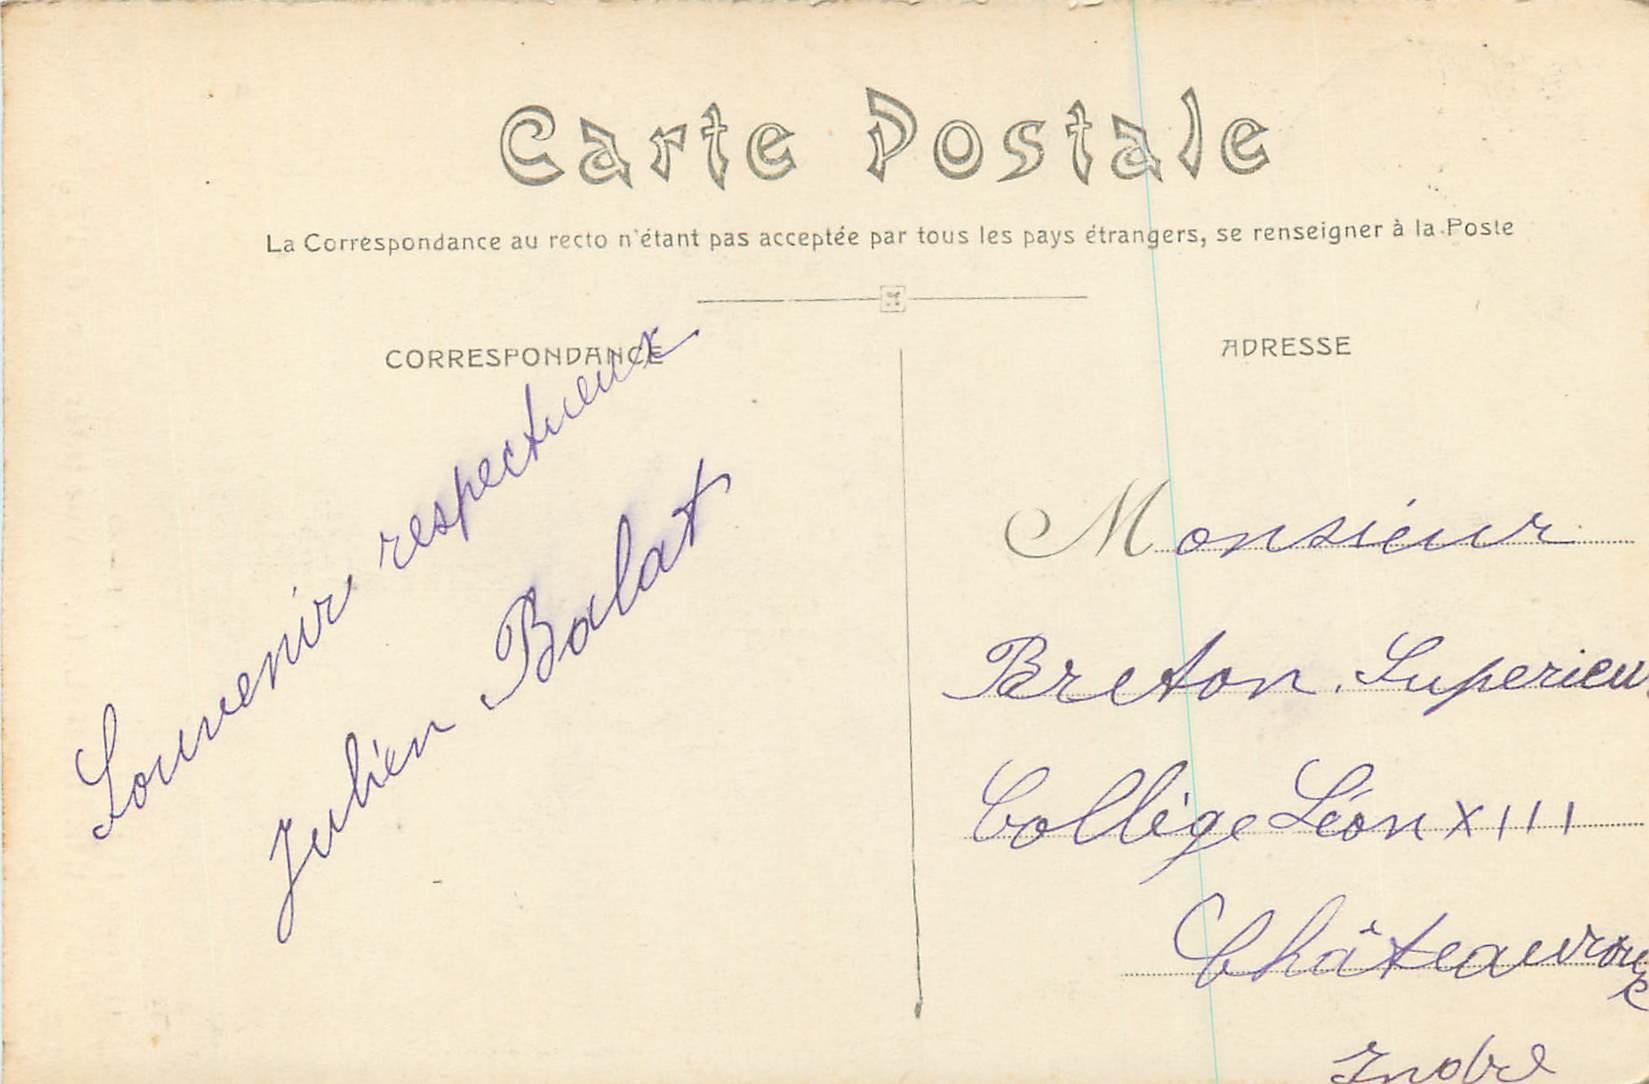 Carte Postale
La Correspondance au recto n'étant pas acceptée par tous les pays étrangers, se renseigner à la Poste
CORRESPONDANCE
Souvenir respectueux
Julien Balat
ADRESSE
Monsieur
Breton. Superieur
Collège Léon XIII
Châteauroux
Indre